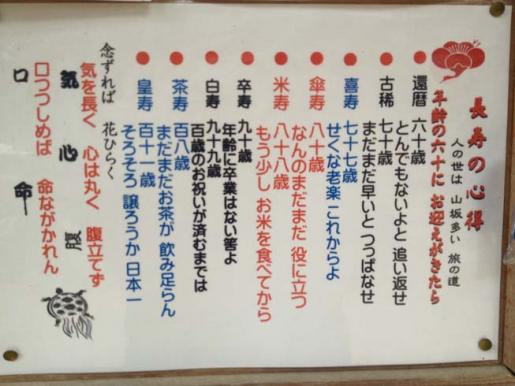 長寿の心得
人の世は 山坂多い 旅の道
年齢の六十に お迎えがきたら
還暦 六十歳
とんでもないよと 追い返せ
古稀 七十歳
まだまだ早いと つっぱなせ
喜寿 七十七歳
せくな老楽 これからよ
傘寿 八十歳
なんのまだまだ 役に立つ
米寿 八十八歳
もう少し お米を食べてから
卒寿 九十歳
年齢に卒業はない筈よ
白寿 九十九歳
百歳のお祝いが済むまでは
茶寿 百八歳
まだまだお茶が 飲み足らん
皇寿 百十一歳
そろそろ 譲ろうか 日本一
念ずれば 花ひらく
気を長く 心は丸く 腹立てず
気 心 腹
口つつしめば 命ながかれん
口 命